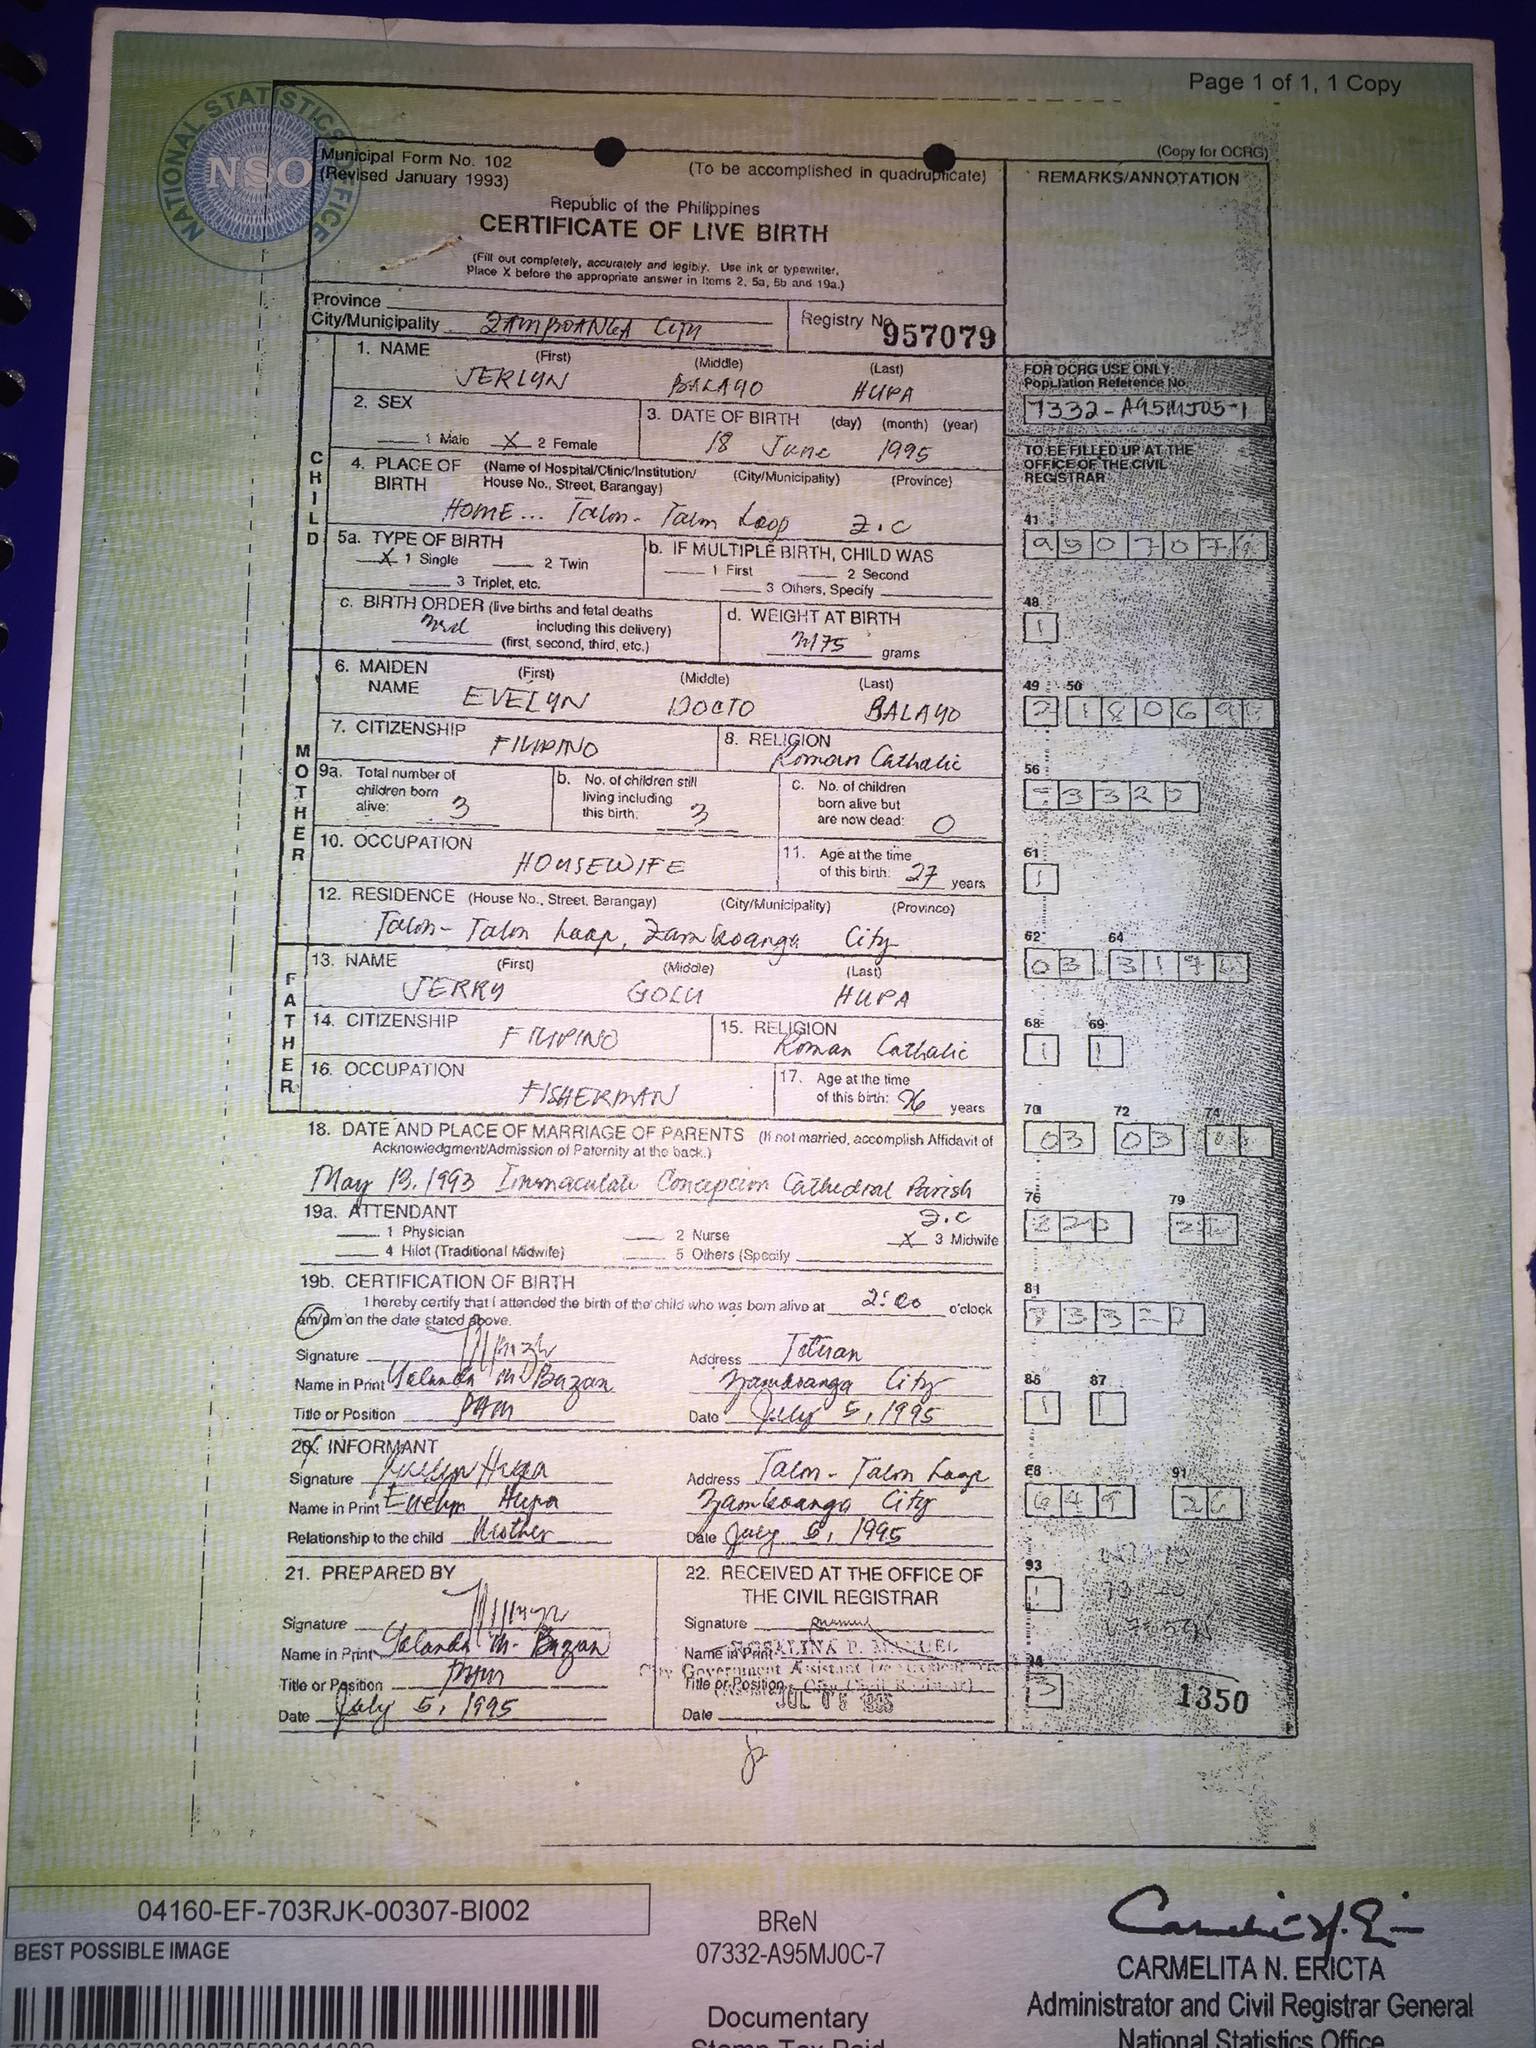 Page 1 of 1, 1 Copy
NATIONAL STATISTICS OFFICE
NSO
Municipal Form No. 102
(Revised January 1993)
(To be accomplished in quadruplicate)
(Copy for OCRG)
REMARKS/ANNOTATION
Republic of the Philippines
CERTIFICATE OF LIVE BIRTH
(Fill out completely, accurately and legibly. Use ink or typewriter.
Place X before the appropriate answer in Items 2, 5a, 5b and 19a.)
Province
City/Municipality ZAMBOANGA CITY
Registry No. 957079
CHILD
1. NAME (First) (Middle) (Last)
JERLYN BALAYO HUPA
FOR OCRG USE ONLY
Population Reference No.
7332-A95MJ05-1
2. SEX
1 Male X 2 Female
3. DATE OF BIRTH (day) (month) (year)
18 June 1995
TO BE FILLED UP AT THE
OFFICE OF THE CIVIL
REGISTRAR
4. PLACE OF BIRTH (Name of Hospital/Clinic/Institution/
House No., Street, Barangay) (City/Municipality) (Province)
HOME... Talon-Talon Loop Z.C
5a. TYPE OF BIRTH
X 1 Single 2 Twin
3 Triplet, etc.
b. IF MULTIPLE BIRTH, CHILD WAS
1 First 2 Second
3 Others, Specify
41
c. BIRTH ORDER (live births and fetal deaths
3rd including this delivery)
(first, second, third, etc.)
d. WEIGHT AT BIRTH
3175 grams
48
1
MOTHER
6. MAIDEN NAME (First) (Middle) (Last)
EVELYN DOCTO BALAYO
49 50
2 180695
7. CITIZENSHIP FILIPINO
8. RELIGION Roman Catholic
9a. Total number of
children born
alive: 3
b. No. of children still
living including
this birth: 3
c. No. of children
born alive but
are now dead: 0
56
10. OCCUPATION HOUSEWIFE
11. Age at the time
of this birth: 27 years
61
1
12. RESIDENCE (House No., Street, Barangay) (City/Municipality) (Province)
Talon-Talon Loop, Zamboanga City
62 64
03
FATHER
13. NAME (First) (Middle) (Last)
JERRY GOLU HUPA
14. CITIZENSHIP FILIPINO
15. RELIGION Roman Catholic
68 69
1 1
16. OCCUPATION FISHERMAN
17. Age at the time
of this birth: 26 years
18. DATE AND PLACE OF MARRIAGE OF PARENTS (If not married, accomplish Affidavit of
Acknowledgment/Admission of Paternity at the back.)
May 13, 1993 Immaculate Concepcion Cathedral Parish
Z.C
70 72 74
03 03
19a. ATTENDANT
1 Physician 2 Nurse X 3 Midwife
4 Hilot (Traditional Midwife) 5 Others (Specify
76 79
19b. CERTIFICATION OF BIRTH
I hereby certify that I attended the birth of the child who was born alive at 2:00 o'clock
am/pm on the date stated above.
81
Signature
Address Tetuan
Name in Print Yolanda M. Bazan
Zamboanga City
Title or Position
Date July 5, 1995
86 87
1 1
20. INFORMANT
Signature Evelyn Hupa
Address Talon-Talon Loop
Name in Print Evelyn Hupa
Zamboanga City
Relationship to the child Mother
Date July 5, 1995
88 91
649 26
21. PREPARED BY
Signature
Name in Print Yolanda M. Bazan
Title or Position
Date July 5, 1995
22. RECEIVED AT THE OFFICE OF
THE CIVIL REGISTRAR
Signature
Name in Print ROSALINA P. MANUEL
City Government Assistant Department
Title or Position
Date JUL 05 1995
93
1
94
3
1350
04160-EF-703RJK-00307-BI002
BEST POSSIBLE IMAGE
BReN
07332-A95MJ0C-7
Documentary
Stamp Tax Paid
CARMELITA N. ERICTA
Administrator and Civil Registrar General
National Statistics Office